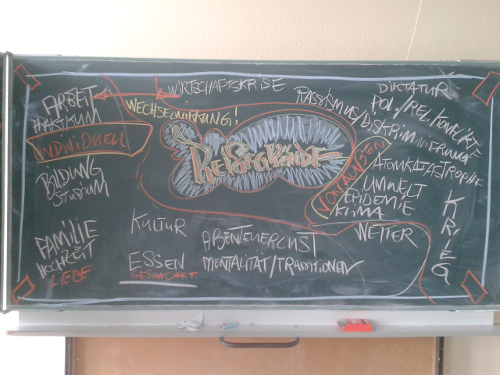 ARBEIT
PRAKTIKUM
INDIVIDUELL
BILDUNG
STUDIUM
FAMILIE
HOCHZEIT
LIEBE
WIRTSCHAFTSKRISE
WECHSELWIRKUNG!
REISEGRÜNDE
KULTUR
ESSEN
GESUNDHEIT
ABENTEUERLUST
MENTALITÄT/TRADITIONEN
DIKTATUR
POL./REL. KONFLIKTE
RASSISMUS/DISKRIMINIERUNG
ATOMKATASTROPHE
UMWELT
EPIDEMIE
KLIMA
WETTER
KRIEG